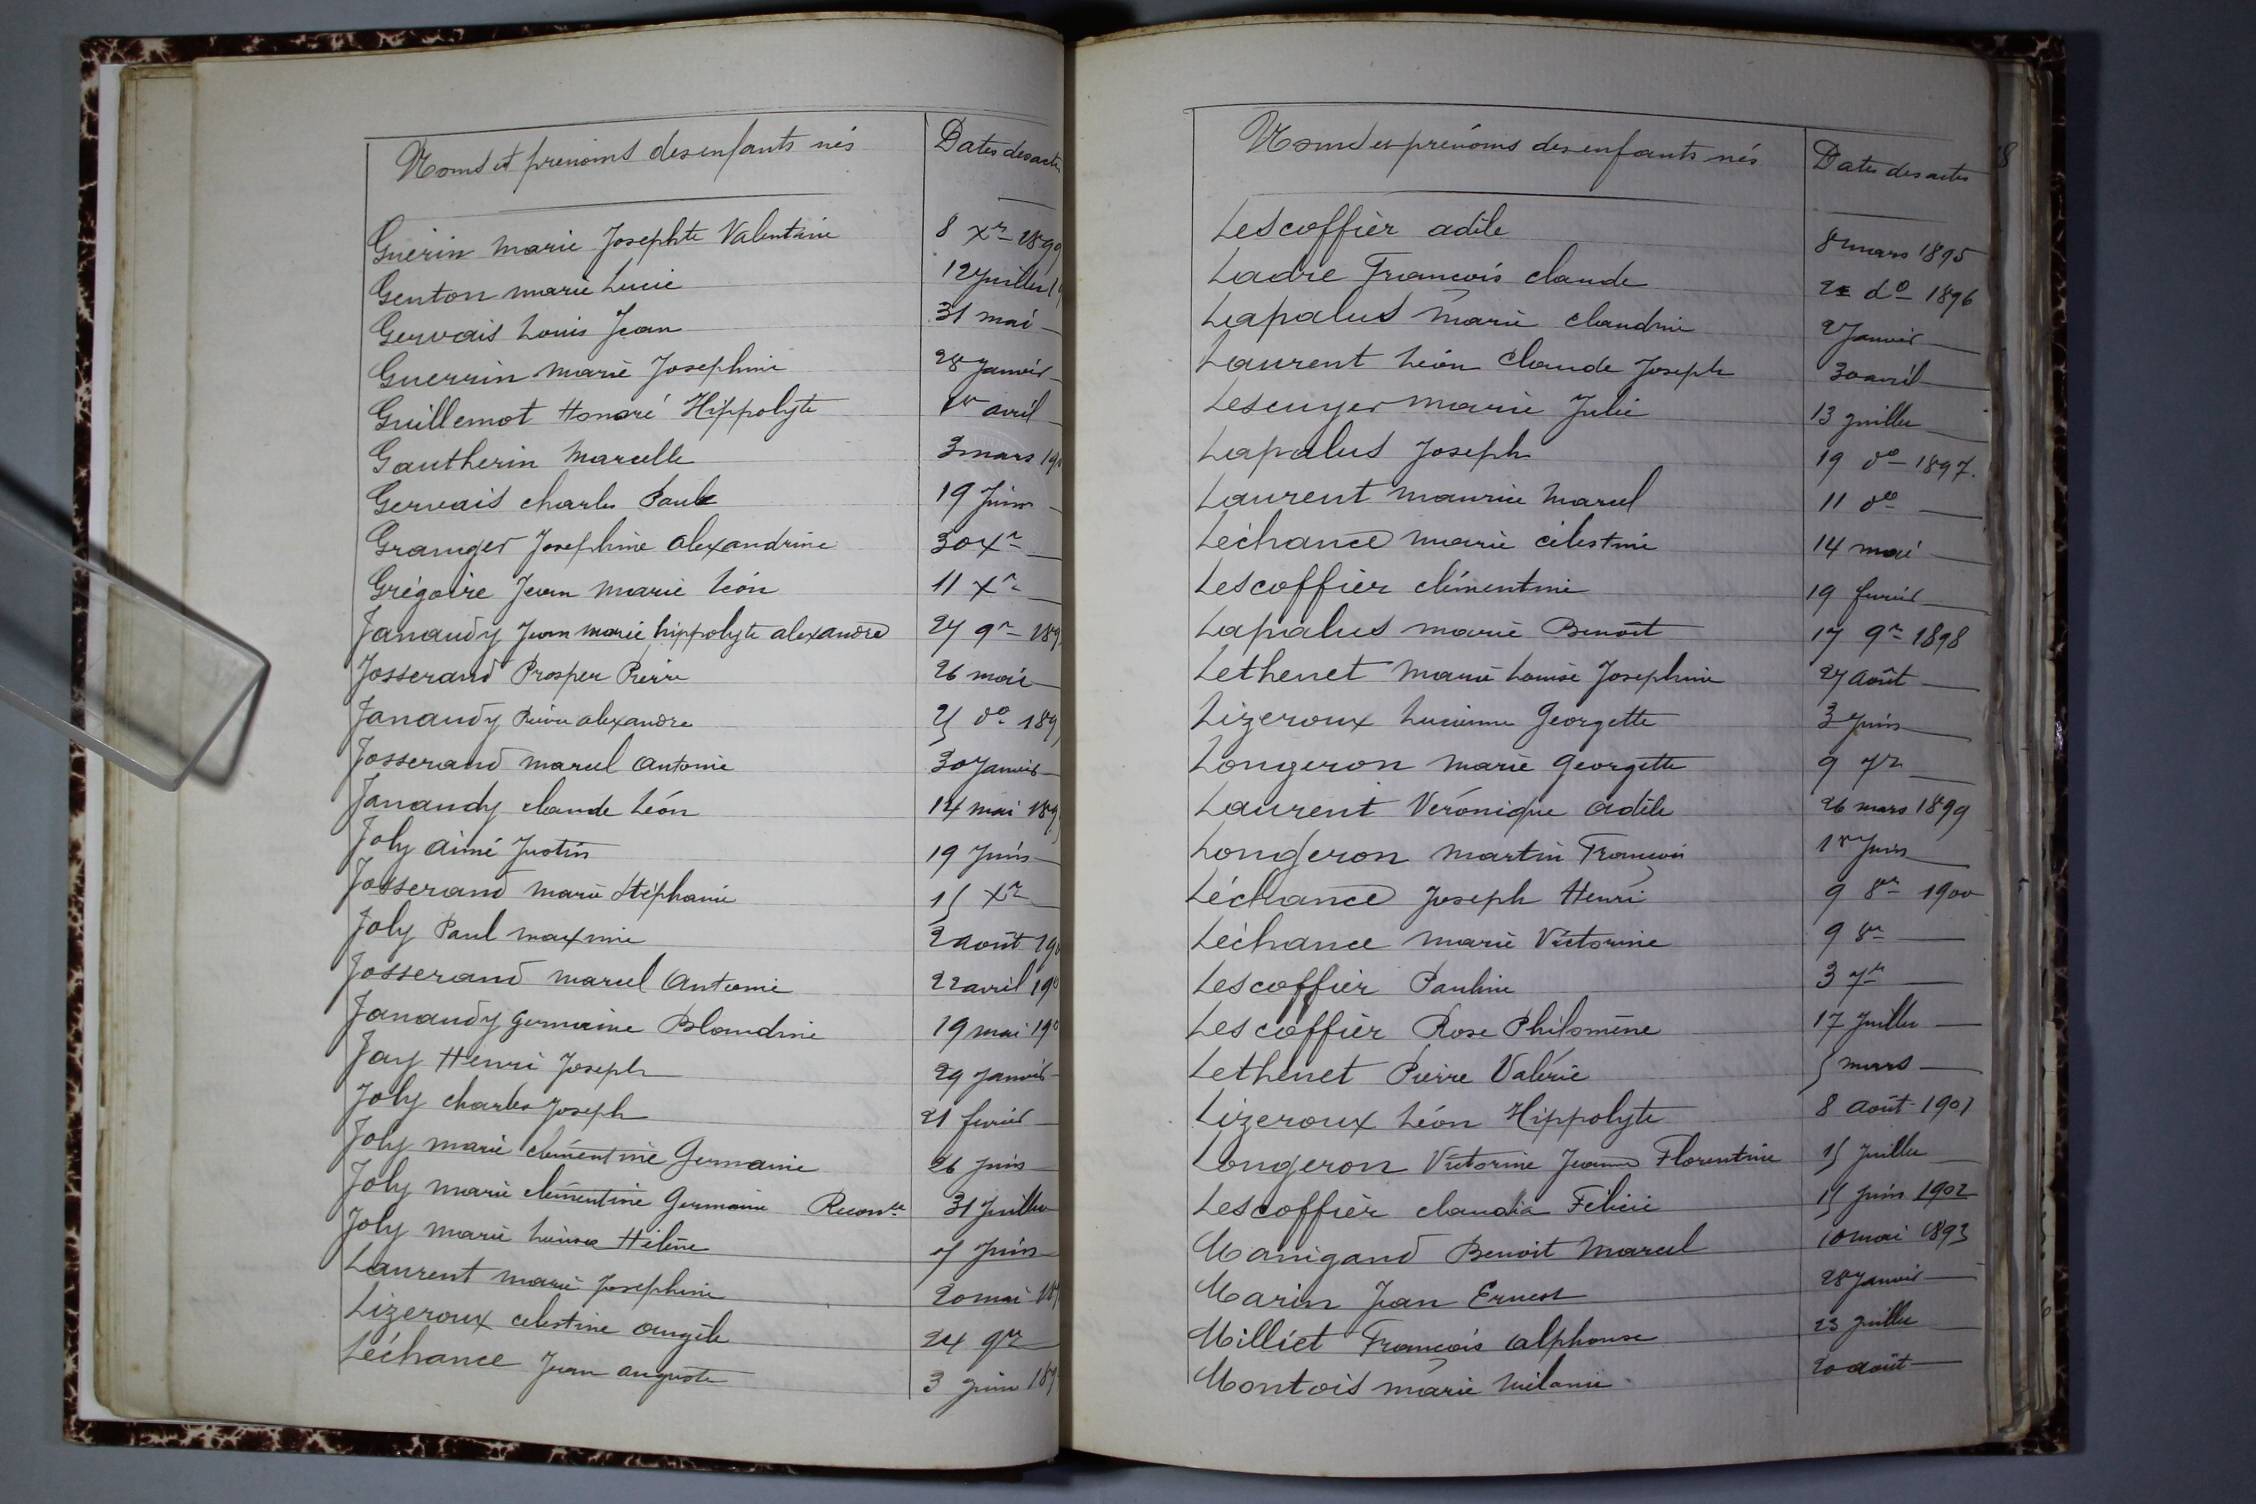 Noms et prénoms des enfants nés Dates des actes
Guérin marie Josephte Valentine 8 Xre 1890
Genton marie Lucie 12 Juillet
Gervais Louis Jean 31 mai
Guerrin marie Josephine 28 Janvier
Guillemot Honoré Hippolyte 1er avril
Gautherin Marcelle 3 mars 190
Gervais charles Paul 19 Juin
Granger Josephine alexandrine 30 Xre
Grégoire Jean Marie Léon 11 Xre
Janaudy Jean marie hippolyte alexandre 27 9re 189
Josserand Prosper Pierre 26 mai
Janaudy Pierre alexandre 25 do 189
Josserand marcel antonie 30 Janvier
Janaudy claude Léon 14 mai 189
Joly aimé Justin 19 Juin
Josserand marie Stéphanie 15 Xre
Joly Paul maxime 2 août 190
Josserand marcel antonie 22 avril 190
Janaudy germaine Blandine 19 mai 190
Jay Henri Joseph 29 Janvier
Joly charles Joseph 21 fevrier
Joly marie clémentine Germaine 26 Juin
Joly marie clémentine Germaine Reconce 31 Juillet
Joly marie Louisa Hélène 7 Juin
Laurent marie Josephine 20 mai 189
Lizeroux celestine angèle 24 9re
Léchance Jean auguste 3 Juin 189
Noms et prénoms des enfants nés Dates des actes
Lescoffier adèle 8 mars 1895
Ladre François claude 2 do 1896
Lapalus marie claudine 2 Janvier
Laurent Léon Claude Joseph 30 avril
Lescuyer marie Julie 13 Juillet
Lapalus Joseph 19 do 1897.
Laurent maurice Marcel 11 do
Léchance marie célestine 14 mai
Lescoffier clémentine 19 fevrier
Lapalus marie Benoît 17 9re 1898
Lethenet Marie Louise Josephine 27 Août
Lizeroux Lucienne Georgette 3 Juin
Longeron Marie Georgette 9 7re
Laurent Véronique adèle 26 mars 1899
Longeron Martin François 1er Juin
Léchance Joseph Henri 9 8re 1900
Léchance marie Victorine 9 8re
Lescoffier Pauline 3 7re
Lescoffier Rose Philomène 17 Juillet
Lethenet Pierre Valérie 5 mars
Lizeroux Léon Hippolyte 8 Août 1901
Longeron Victorine Jeanne Florentine 15 Juillet
Lescoffier claudia Félicie 15 Juin 1902
Manigand Benoit Marcel 10 mai 1893
Marin Jean Ernest 28 Janvier
Milliet François alphonse 23 Juillet
Montois marie mélanie 20 août